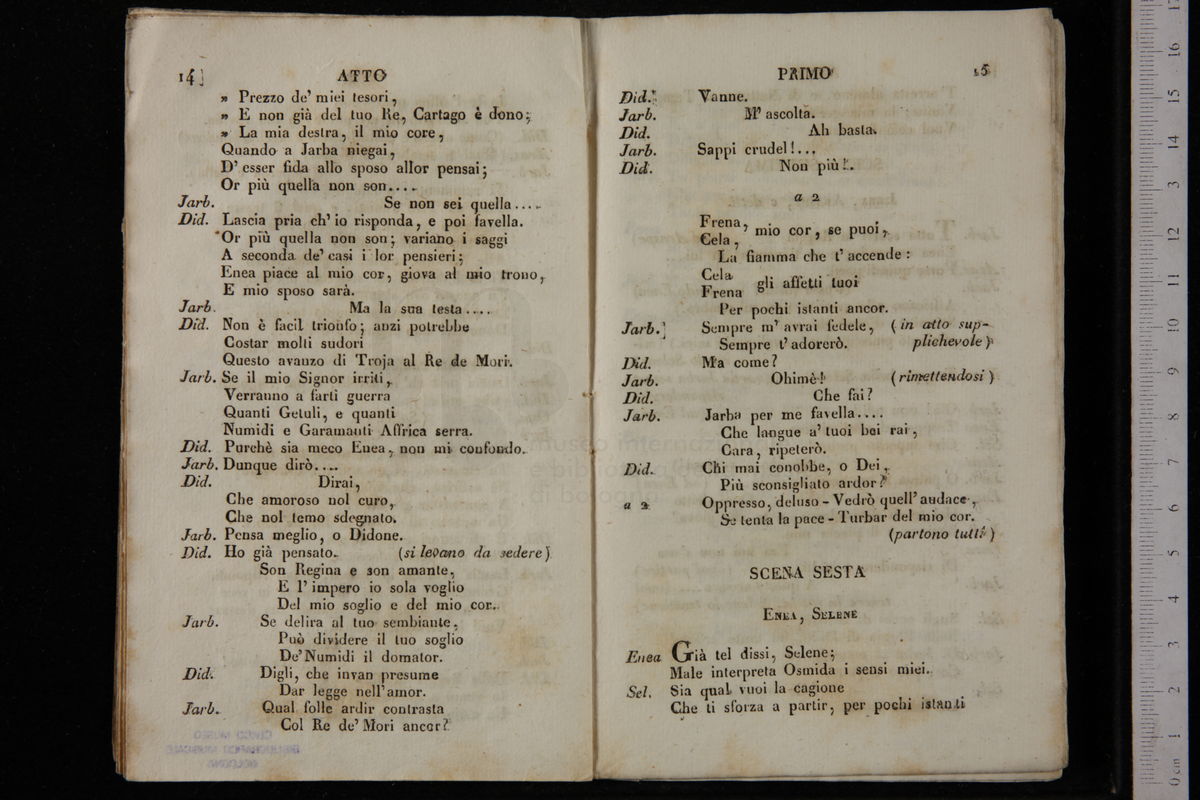 14
ATTO
» Prezzo de' miei tesori,
» E non già del tuo Re, Cartago è dono;
» La mia destra, il mio core,
Quando a Jarba niegai,
D' esser fida allo sposo allor pensai;
Or più quella non son....
Jarb. Se non sei quella....
Did. Lascia pria ch' io risponda, e poi favella.
Or più quella non son; variano i saggi
A seconda de' casi i lor pensieri;
Enea piace al mio cor, giova al mio trono,
E mio sposo sarà.
Jarb. Ma la sua testa....
Did. Non è facil trionfo; anzi potrebbe
Costar molti sudori
Questo avanzo di Troja al Re de Mori.
Jarb. Se il mio Signor irriti,
Verranno a farti guerra
Quanti Getuli, e quanti
Numidi e Garamanti Affrica serra.
Did. Purchè sia meco Enea, non mi confondo.
Jarb. Dunque dirò....
Did. Dirai,
Che amoroso nol curo,
Che nol temo sdegnato.
Jarb. Pensa meglio, o Didone.
Did. Ho già pensato. (si levano da sedere)
Son Regina e son amante,
E l' impero io sola voglio
Del mio soglio e del mio cor.
Jarb. Se delira al tuo sembiante,
Può dividere il tuo soglio
De' Numidi il domator.
Did. Digli, che invan presume
Dar legge nell' amor.
Jarb. Qual folle ardir contrasta
Col Re de' Mori ancor?
PRIMO
15
Did. Vanne.
Jarb. M' ascolta.
Did. Ah basta.
Jarb. Sappi crudel!...
Did. Non più!.
a 2
Frena,
Cela, mio cor, se puoi,
La fiamma che t' accende:
Cela
Frena gli affetti tuoi
Per pochi istanti ancor.
Jarb. Sempre m' avrai fedele, (in atto sup-
Sempre t' adorerò. plichevole)
Did. Ma come?
Jarb. Ohimè! (rimettendosi)
Did. Che fai?
Jarb. Jarba per me favella....
Che langue a' tuoi bei rai,
Cara, ripeterò.
Did. Chi mai conobbe, o Dei,
Più sconsigliato ardor?
a 2 Oppresso, deluso - Vedrò quell' audace,
Se tenta la pace - Turbar del mio cor.
(partono tutti)
SCENA SESTA
ENEA, SELENE
Enea Già tel dissi, Selene;
Male interpreta Osmida i sensi miei.
Sel. Sia qual vuoi la cagione
Che ti sforza a partir, per pochi istanti